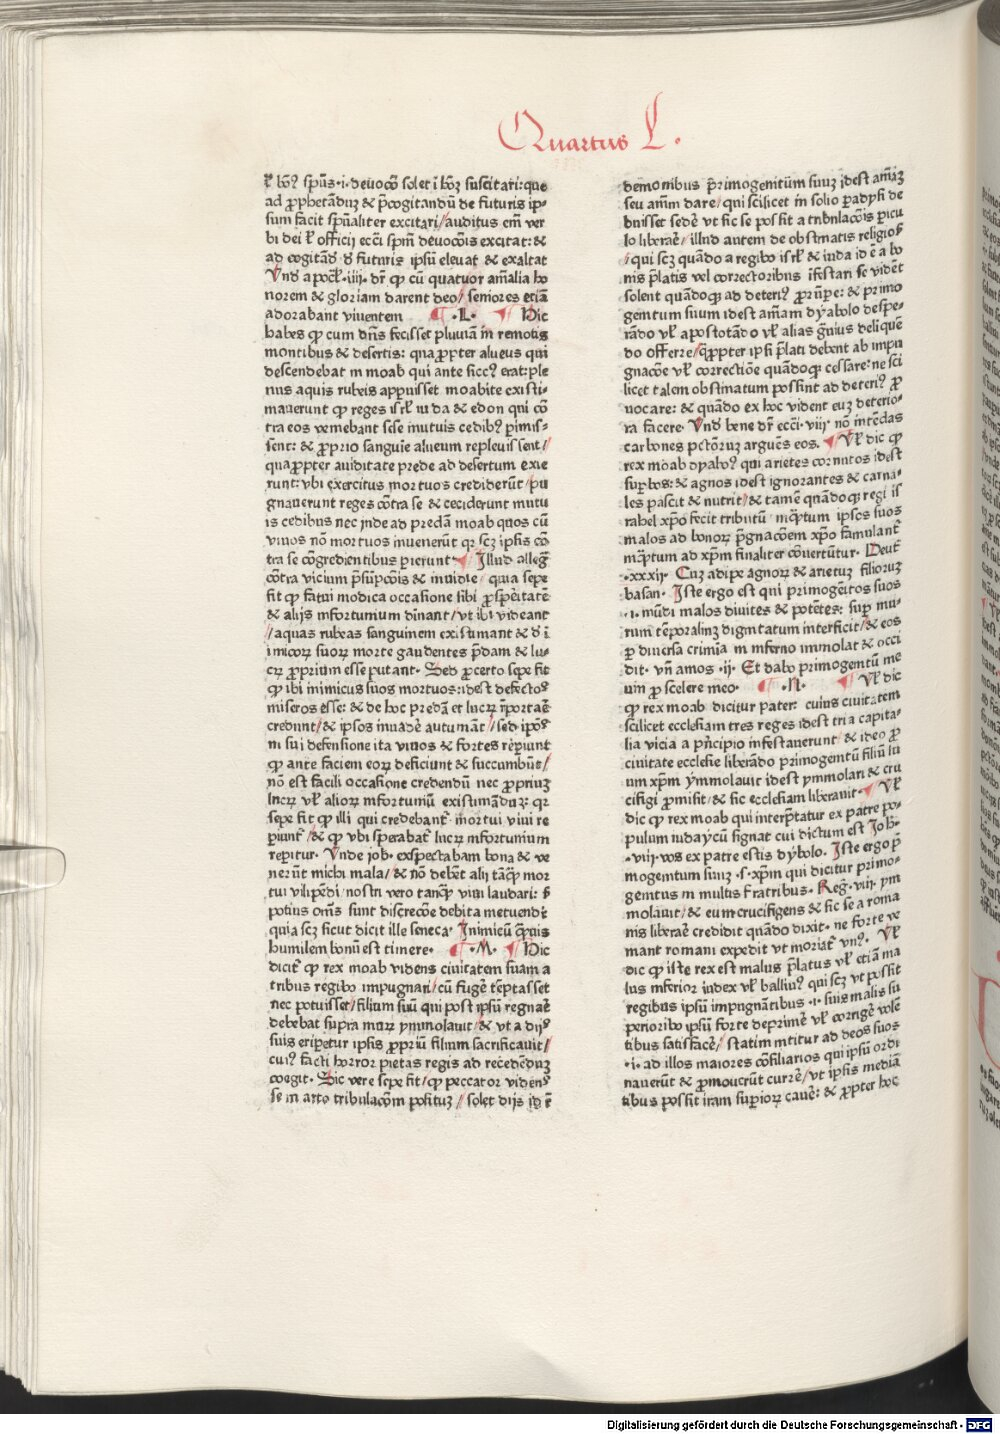 Quartus L.
ł̄ bõꝰ sp̃us·i·deuocõ solet ĩ bõꝫ suscitari: que
ad ꝓpbetãdũꝫ & p̃cogitandũ de futuris ip/
sum facit sp̃ualiter excitari/auditus em̃ ver
bi dei ł̃ officij ecc̃i sp̃m deuocõis excitat: &
ad cogitãd̃ d̃ futuris ipsũ eleuat & exaltat
Vnd̃ apocł̃·iiij·dr̃ ꝙ cũ quatuor am̃alia bo
norem & gloriam darent deo/ seniores etiã
adorabant viuentem ¶ ·L· ¶ Dic
babes ꝙ cum dñs fecisset pluuiã in remotis
montibus & desertis: quapropter alueus qui
descendebat in moab qui ante siccꝰ erat: ple
nus aquis rubeis appuisset moabite existi/
mauerunt ꝙ reges isrł̃ iuda & edon qui cõ
tra eos veniebant sese mutuis cedibꝰ ꝑimis/
sent: & ꝓprio sanguie alueum repleuissent/
quapropter auiditate prede ad desertum exie
runt: vbi exercitus mortuos crediderũt/pu
gnauerunt reges cõtra se & ceciderunt mutu
is cedibus nec inde ad predã moab quos cũ
viuos nõ mortuos inuenerũt qꝛ scꝫ ipsis cõ
tra se cõgredientibus ꝑierunt ¶ Illud alleg̃
cõtra vicium p̃sũpcõis & inuidie/ quia sepe
fit ꝙ fatui modica occasione sibi ꝓsꝑeitatẽ
& alijs infortunium diuinant/vt ibi videant
/aquas rubeas sanguinem existimant & d̃ ĩ
imicoꝝ suoꝝ morte gaudentes p̃dam & lu/
cꝝ ꝓprium esse putant· Sed ꝓcerto sepe fit
ꝙ ibi inimicus suos mortuos: idest defectoꝰ
miseros esse: & de hoc predã et lucꝝ r̃portaẽ
credunt/& ipsos inuadẽ autumãt/sed ip̃oꝰ
in sui defensione ita viuos & fortes rẽꝑiunt
ꝙ ante faciem eoꝝ deficiunt & succumbũt/
nõ est facili occasione credendũ nec ꝓpriuꝫ
lucꝝ vł̃ alioꝝ infortuniũ existimãduꝫ: qꝛ
sepe fit ꝙ illi qui credebant̃ mortui viui re
ꝑiunt̃/& ꝙ vbi sperabat̃ lucꝝ infortunium
reꝑitur· Vnde iob· exspectabam bona & ve
nerũt michi mala/& nõ debẽt alij tãꝙ̃ mor
tui vilipẽdi nostri vero tanꝙ̃ viui laudari: s̃
potius om̃s sunt discrecõe debita metuendi
quia scꝫ sicut dicit ille seneca· Inimicũ ꝙ̃uis
humilem bonũ est timere· ¶ ·M· ¶ Dic
dicit̃ ꝙ rex moab videns ciuitatem suam a
tribus regibꝰ impugnari/cũ fugẽ tẽptasset
nec potuisset/filium suũ qui post ipsũ regnaẽ
debebat supra muꝝ ymmolauit/& vt a dijs
suis eriꝑetur ipsis ꝓpriũ filium sacrificauit/
cuiꝰ facti horror pietas regis ad recedẽduꝫ
coegit· Sic vere sepe fit/ꝙ peccator videns
se in arto tribulacõm posituꝫ/solet dijs id ẽ
demonibus p̃rimogenitũm suuꝫ idest am̃aꝫ
seu am̃m dare/qui scilicet in solio ꝑadysi de
buisset sedẽ vt sic se possit a tribulacõis ꝑicu
lo liberaẽ/illud autem de obstinatis religiosꝰ
/qui scꝫ quãdo a regibꝰ isrł̃ & iuda id ẽ a bo
nis p̃latis vel correctoribus ĩfestari se vidẽt
solent quãdoꝙ ad deteriꝰ ꝓruꝑe: & primo
genitum suum idest am̃am dyabolo despe/
rãdo vł̃ apostotãdo vł̃ alias g̃uius deliquẽ
do offerre/q̃ꝓpter ipsi p̃lati debent ab impu
gnacõe vł̃ correctiõe quãdoꝙ cessare: ne sci
licet talem obstinatum possint ad deteriꝰ ꝓ
uocare: & quãdo ex hoc vident euꝫ deterio/
ra facere· Vnd̃ bene dr̃ ecc̃i·viij· nõ intẽdas
carbones pctõruꝫ arguẽs eos. ¶ Vł̃ dic ꝙ
rex moab dyabolꝰ qui arietes cornutos idest
suꝑbos: & agnos idest ignorantes & carna/
les pascit & nutrit/& tamẽ quãdoꝙ regi is
rahel xp̃o fecit tributũ inq̃tum ipsos suos
malos ad bonoꝝ p̃gnacõem xp̃o famulant̃
inq̃tum ad xp̃m finaliter cõuertũtur· Deut̃
·xxxij· Cuꝫ adipe agnoꝝ & arietuꝫ filioruꝫ
basan· Iste ergo est qui primogẽitos suos
·i· mũdi malos diuites & potẽtes: suꝑ mu/
rum tẽporalinꝫ dignitatum interficit/& eos
ꝑ diuersa crimĩa in inferno immolat & occi
dit· vñ amos ·ij· Et dabo primogenitũ me
um ꝓ scelere meo· ¶ ·N· ¶ Vł̃ dic
ꝙ rex moab dicitur pater: cuius ciuitatem
scilicet ecclesiam tres reges idest tria capita/
lia vicia a pñcipio infestauerunt/& ideo ꝓ
ciuitate ecclesie liberãdo primogenitũ filiũ su
um xp̃m ymmolauit idest ymmolari & cru
cifigi ꝓmisit/& sic ecclesiam liberauit ¶ Vł̃
dic ꝙ rex moab qui interp̃tatur ex patre po/
pulum iudaycũ signat cui dictum est Ioh̃·
·viij·vos ex patre estis dybolo. Iste ergo p̃
mogenitum suuꝫ ·s·xp̃m qui dicitur primo/
genitus in multis fratribus· Reg̃·viij· ym
molauit/& eum crucifigens & sic se a roma
nis liberaẽ credidit quãdo dixit· ne forte ve
niant romani expedit vt moriat̃ vnꝰ· Vł̃
dic ꝙ iste rex est malus p̃latus vł̃ etiã ma
lus inferior iudex vł̃ balliuꝰ qui scꝫ vt possit
regibus ipsũ impugnãtibus ·i·suis malis su
perioribꝰ ipsũ forte deprimẽ vł̃ corrigẽ volẽ
tibus satisfacẽ/statim mtitur ad deos suos
·i·ad illos maiores cõsiliarios qui ipsũ ordi
nauerũt & ꝓmouerũt currẽ/vt ipsis mediã
tibus possit iram suꝑioꝝ cauẽ: & ꝓpter hoc
Digitalisierung gefördert durch die Deutsche Forschungsgemeinschaft - DFG